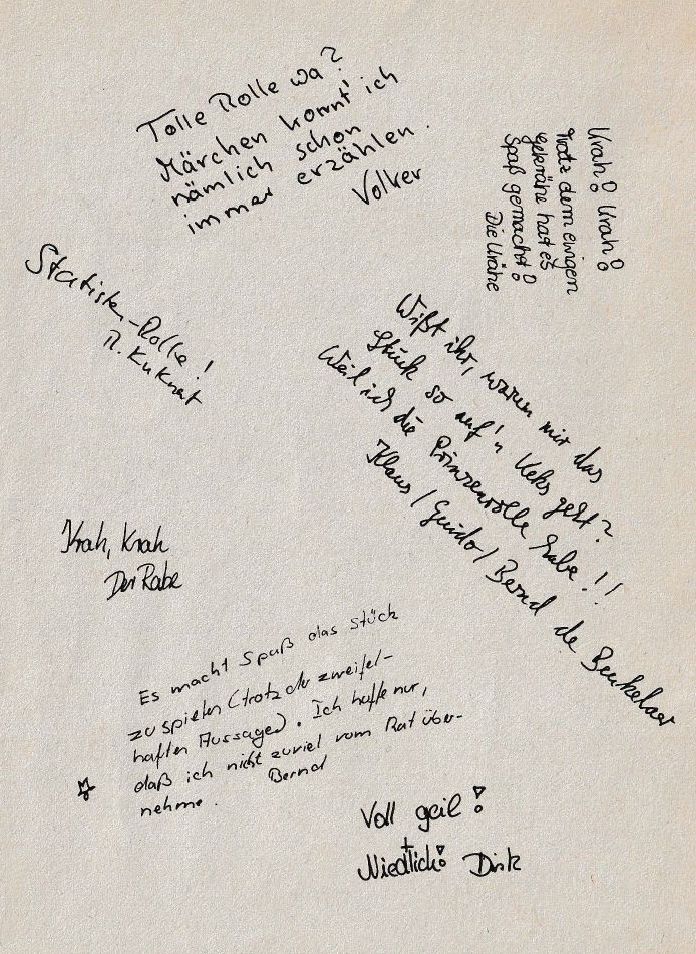 Tolle Rolle wa?
Märchen konnt' ich
nämlich schon
immer erzählen.
Volker
Urah! Urah!
Trotz dem ewigem
Gekrähe hat es
Spaß gemacht!
Die Urähe
Statisten-Rolle!
R. Kuknat
Wißt ihr, warum mir das
Stück so auf'n Keks geht?
Weil ich die Prinzenrolle habe!!
Klaus / Guido / Bernd de Beukelaer
Krah, Krah
Der Rabe
Es macht Spaß das Stück
zu spielen (trotz der zweifel-
haften Aussage). Ich hoffe nur,
daß ich nicht zuviel vom Rat über-
nehme. Bernd
Voll geil!
+
Niedlich! Dirk